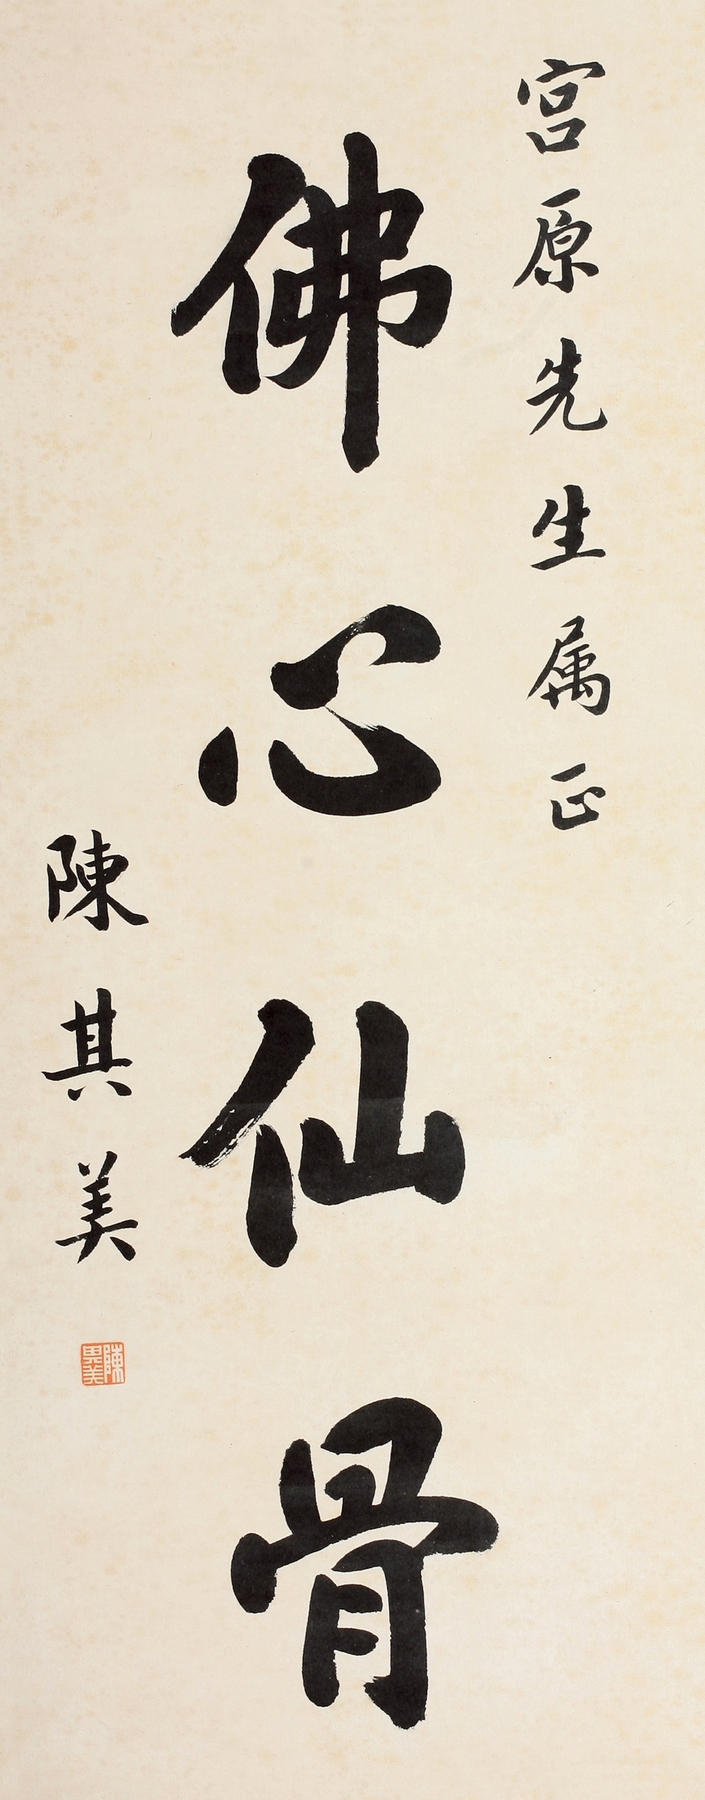 宮原先生属正
佛心仙骨
陳其美
陳其美